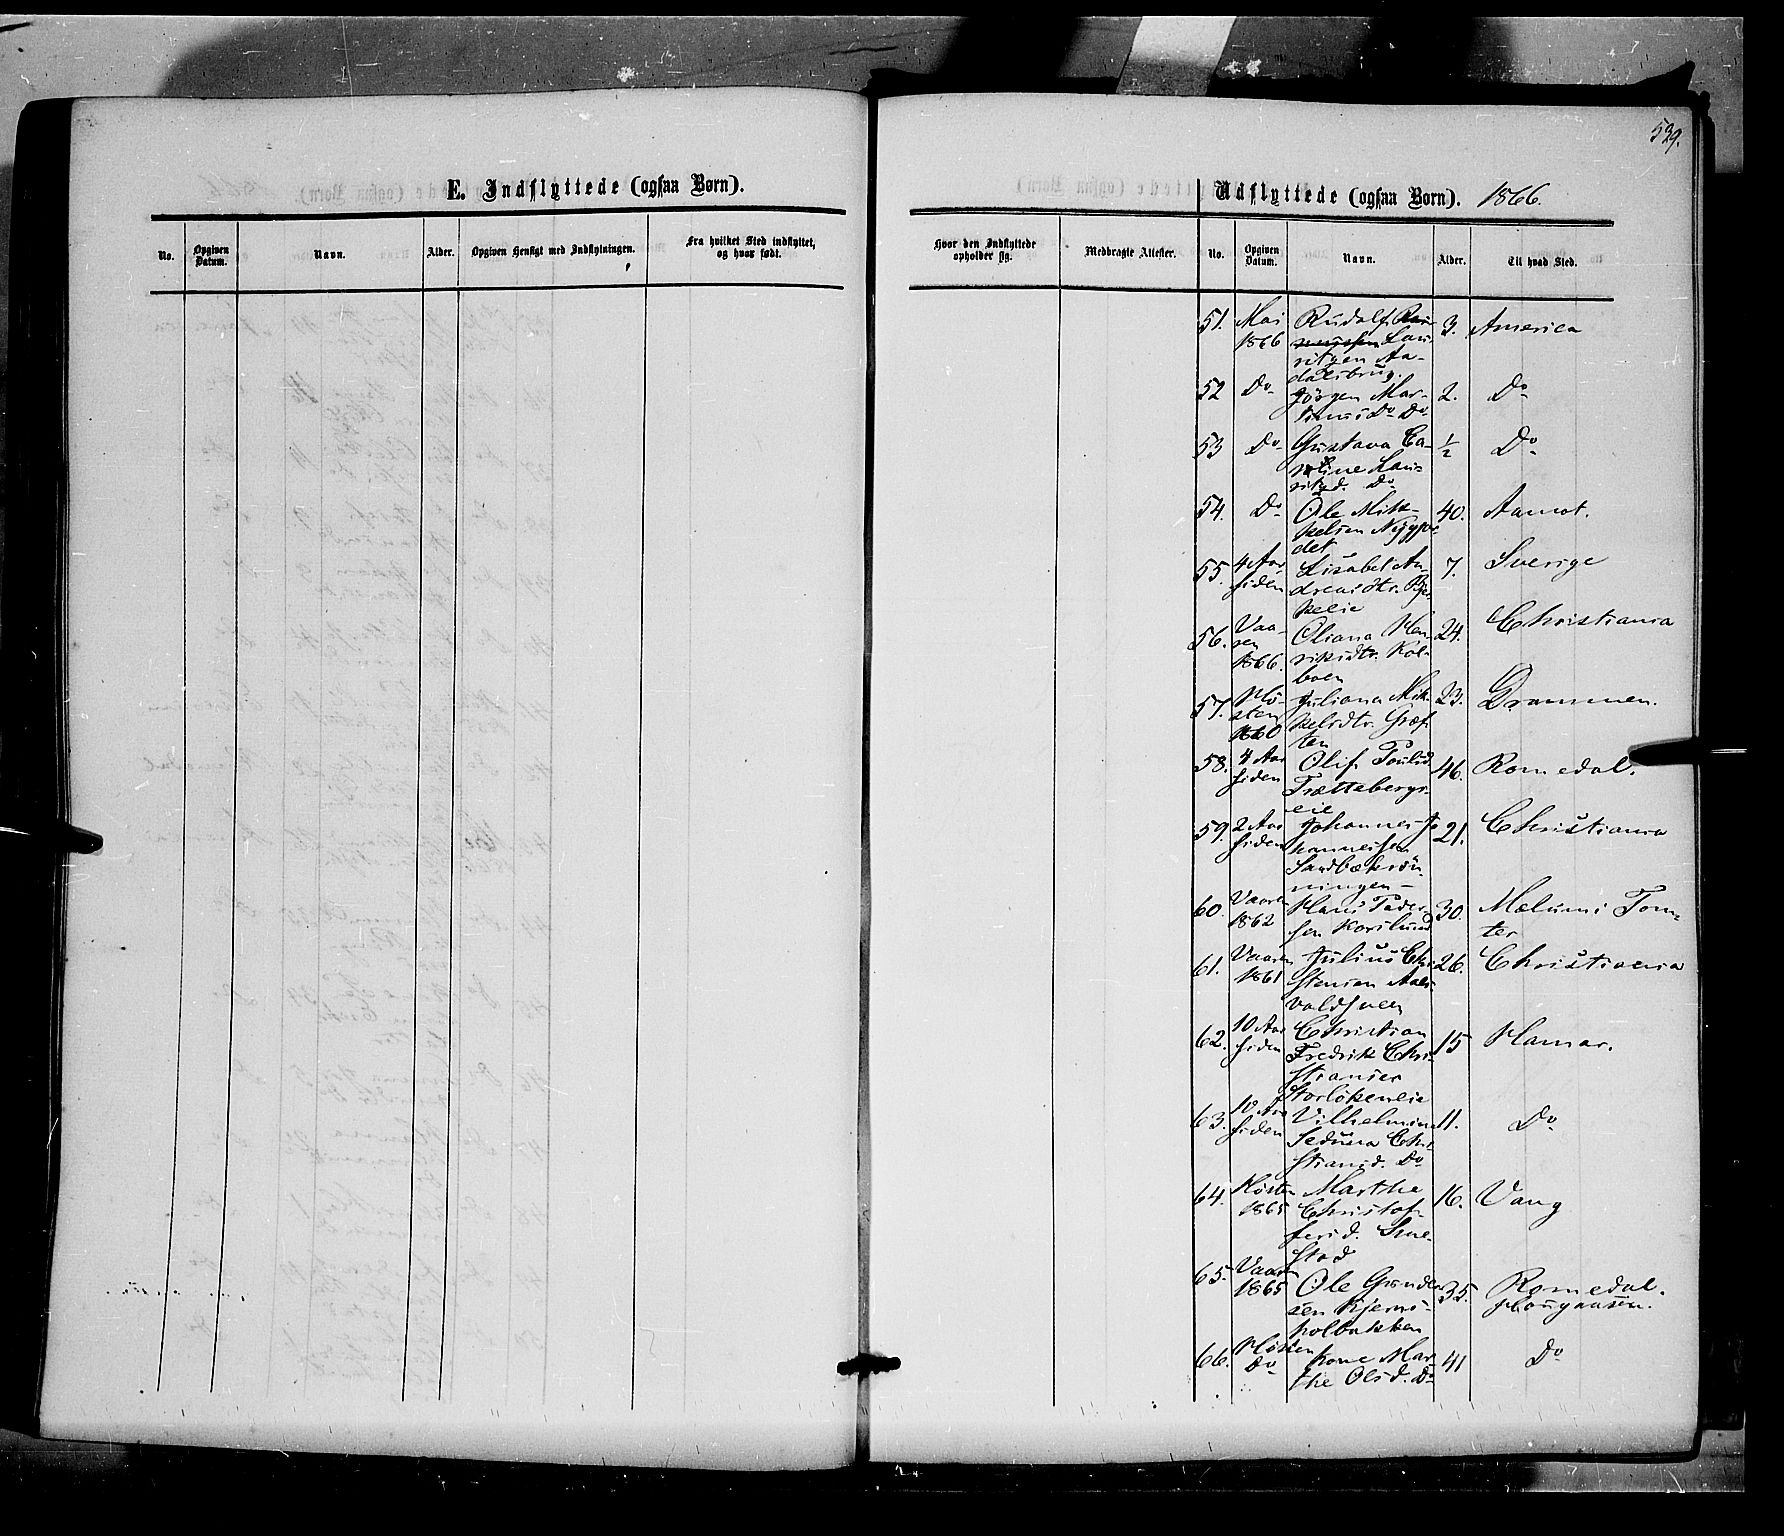 539.
E. Indflyttede (ogsaa Børn).
No.
Opgiven Datum.
Navn.
Alder.
Opgiven Hensigt med Indflytningen.
Fra hvilket Sted indflyttet, og hvor født.
Udflyttede (ogsaa Børn). 1866.
Hvor den Indflyttede opholder sig.
Medbragte Attester.
No.
Opgiven Datum.
Navn.
Alder.
Til hvad Sted.
51. Mai 1866 Rudolf Lauritzen Aadalsbrug. 3. America
52 Do Jörgen Martinus Do Do 2. Do
53 Do Gustava Caroline Lauritzd. Do ½ Do
54. Do Ole Mikkelsen 40. Aamot.
55. 4 Aar siden Lisabet Andreasdtr. 7. Sverige
56. Vaaren 1866. Oliana Henriksdtr. Kolboen 24. Christiania
57. Hösten 1860 Juliana Mikkelsdtr. Græften 23. Drammen.
58. 4 Aar siden Olif Poulsd. Trættebergseie 46. Romedal.
59. 2 Aar siden Johannes Johannessen 21. Christiania
60. Vaaren 1862 Hans Pedersen Korslund 30. Mælum i Tomter
61. Vaaren 1861 Julius Christensen 26. Christiania
62. 10 Aar siden Christian Fredrik Christiansen Storlökeneie 15 Hamar.
63. 10 Aar siden Vilhelmine Christiansd. Do 11. Do
64. Hösten 1865 Marthe Christoffersd. Smestad 16. Vang
65. Vaaren 1865 Ole Gundersen Kjernsholbakken 35. Romedal. Hougaasen.
66. Hösten Do Kone Marthe Olsd. Do 41 Do